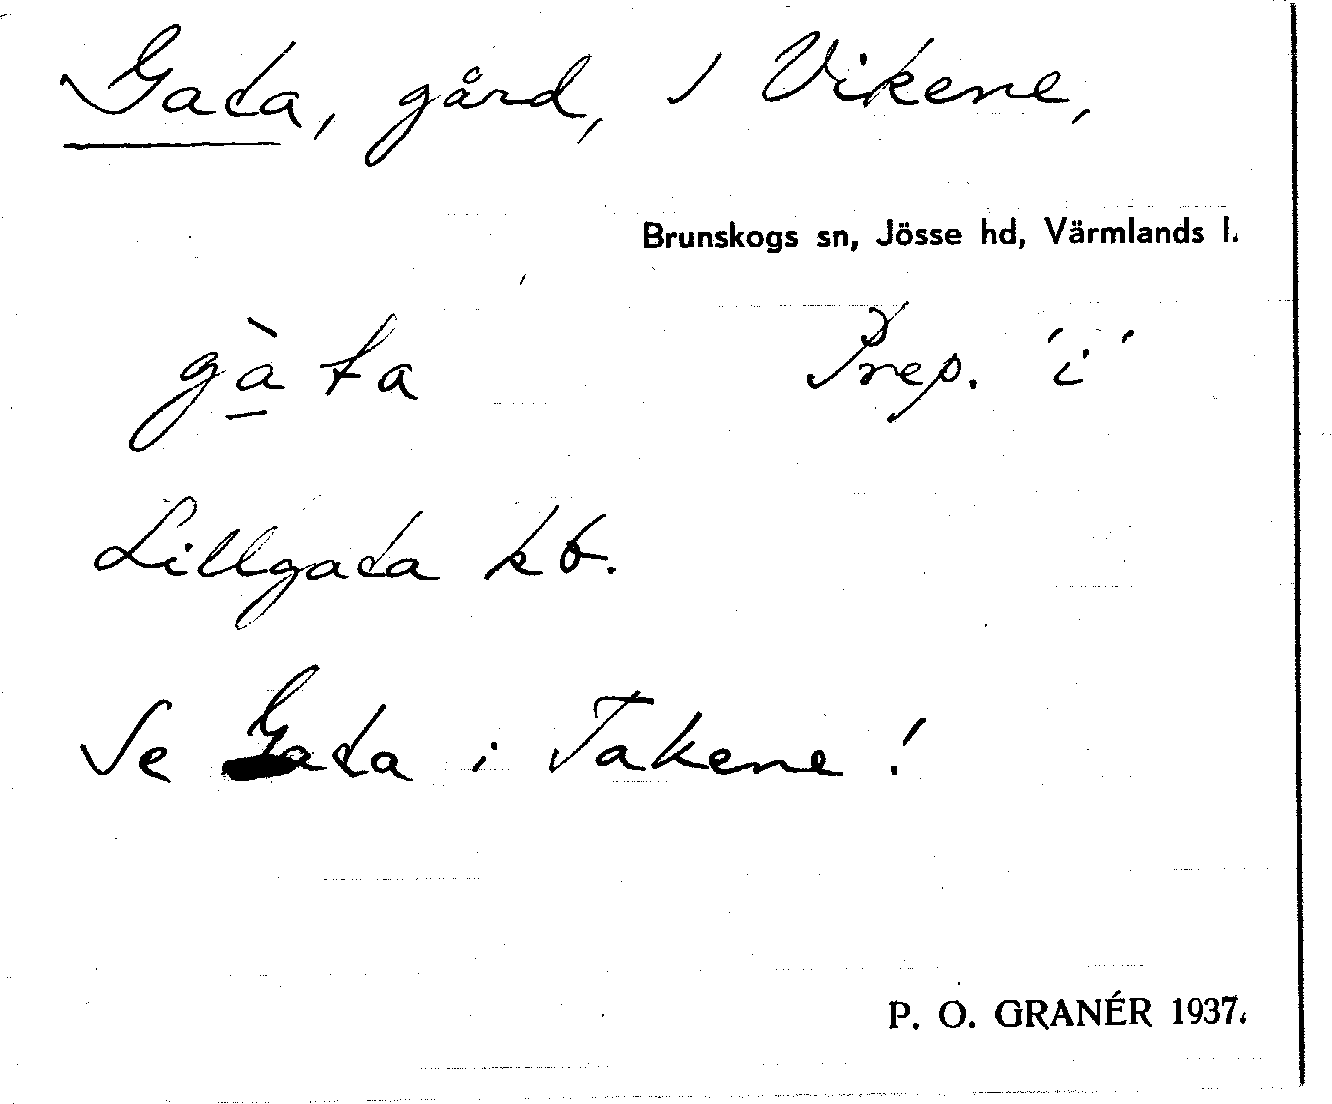 Gata, gård, I Vikene,
Brunskogs sn, Jösse hd, Värmlands l.
gà̱ta Prep. 'i'
Lillgata kb.
Se Gata i Takene!
P. O. GRANÉR 1937.